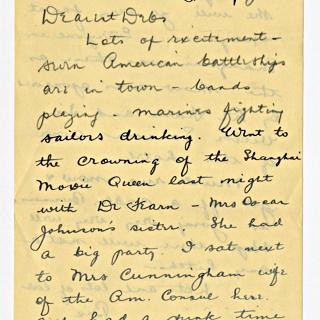 Dearest Debs
Lots of excitement -
seven American battleships
are in town - bands
playing - marines fighting
sailors drinking. Went to
the crowning of the Shanghai
Movie Queen last night
with Dr Fearn - Mrs Oscar
Johnson's sister. She had
a big party. I sat next
to Mrs Cunningham wife
of the Am. Consul here.
and had a drink time